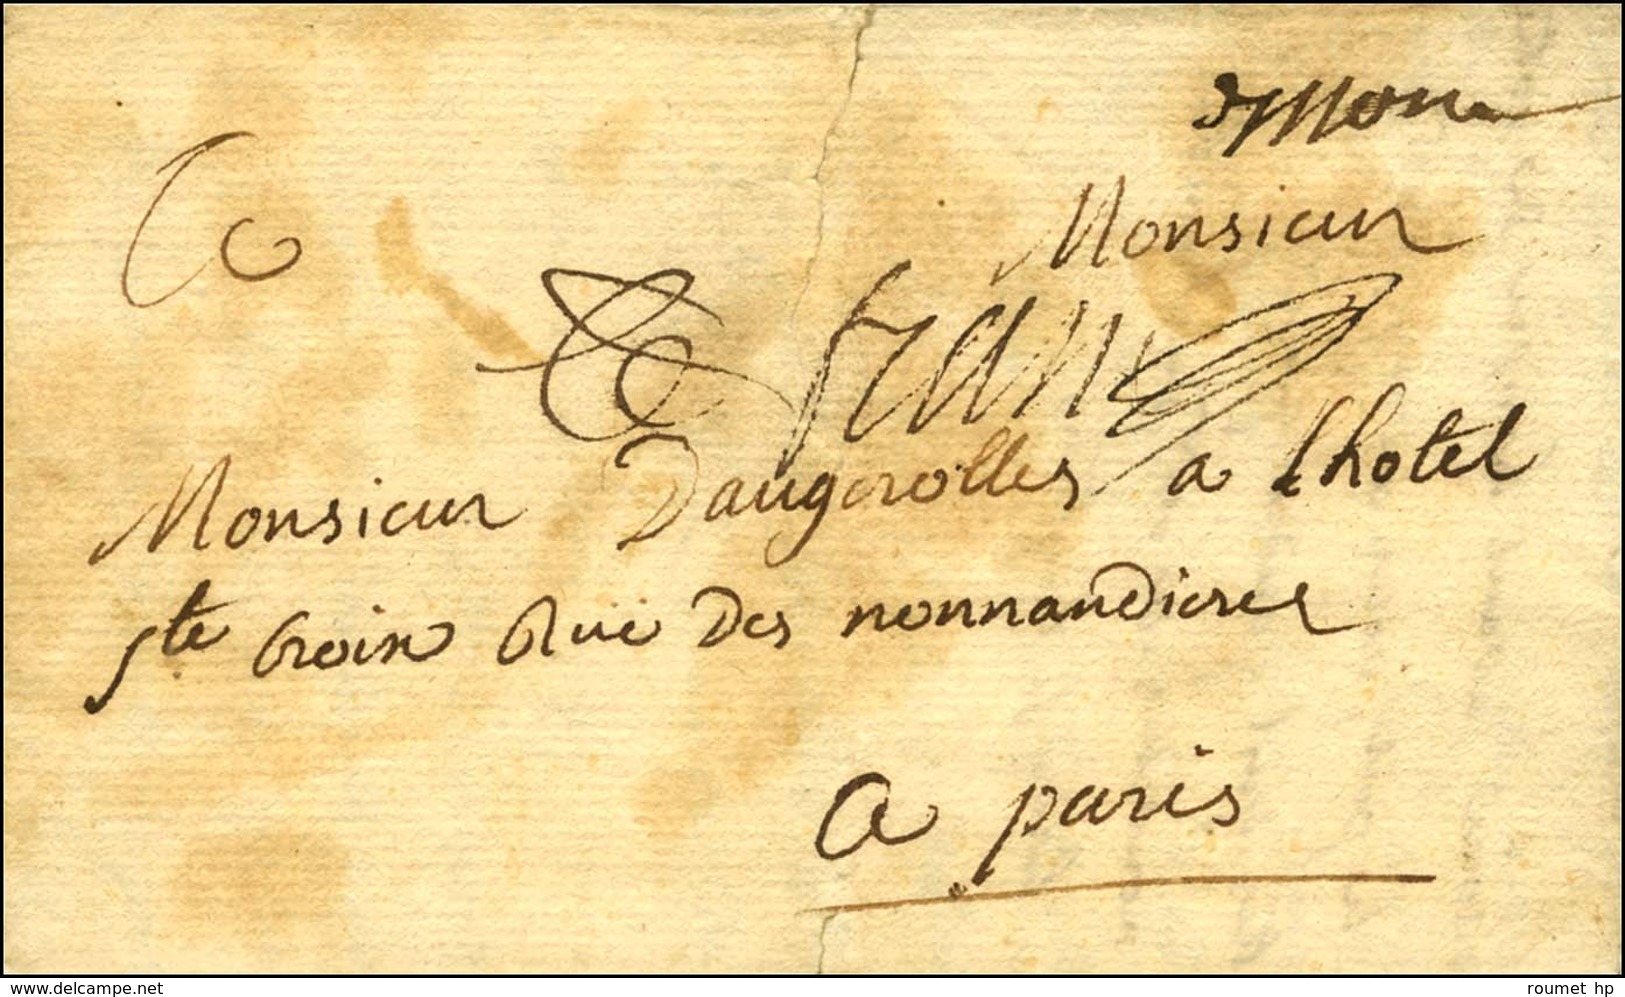 Monsieur
franc
Monsieur Daugerolles a lhotel
ste Croix Rue Des nonnandieres
a paris
www.delcampe.net
roumet hp